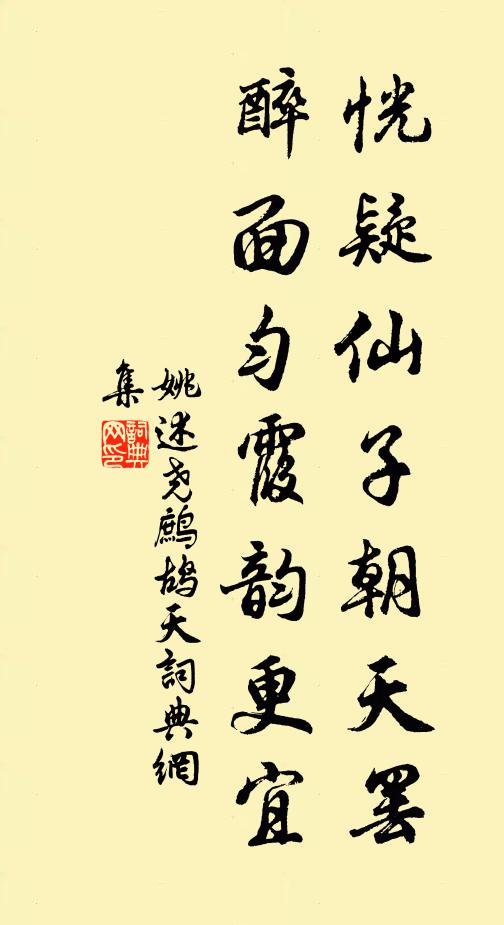 恍疑仙子朝天罢
醉面匀霞韵更宜
姚述尧鹧鸪天詞典網
集
詞典
网印